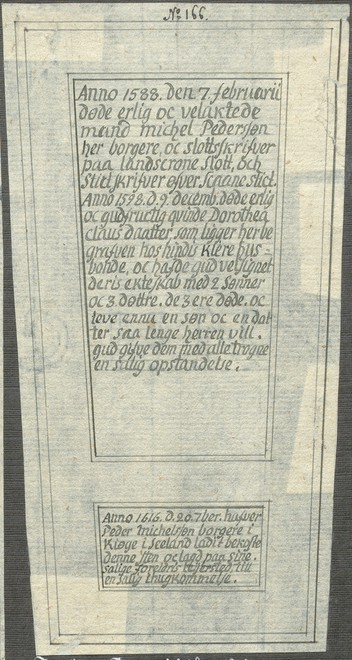 No 166.
Anno 1588. den 7. februarii
døde erlig oc velaktede
mand michel Pedersøn
her borgere, oc slottsskrifver
paa landscrone slott, och
stictskrifver øfver scaane stict.
Anno 1598. d. 9. decemb. døde erlig
oc gudfructig qvinde Dorothea
claus daatter, som ligger her be
grafven hos hindis kiere hus-
bonde, oc hafde gud velsignet
deris ekteskab med 2 sønner
oc 3 døttre. de 3 ere døde. oc
leve ennu en søn oc en dat
ter saa lenge herren vill.
gud gifve dem med alle trogne
en salig opstandelse.
Anno 1616. d. 20. 7ber. hafver
Peder michelsøn borgere i
Kiøge i Seeland ladit bekoste
denne sten oc lagd paa sine
salige foreldris leyersted, till
en salig ihugkommelse.